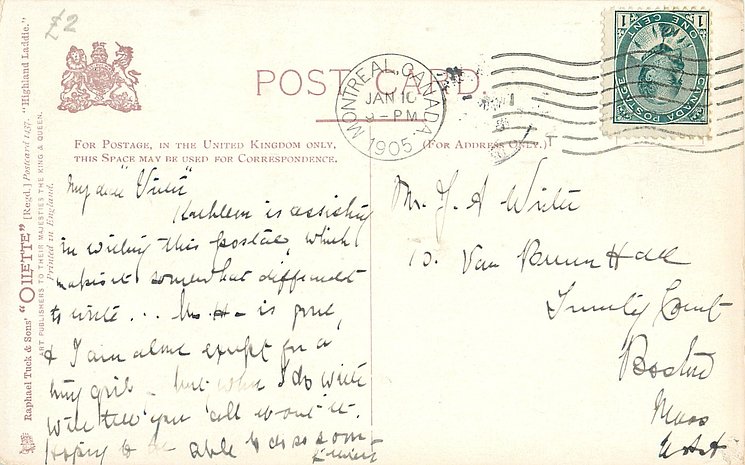 £2
POST CARD.
MONTREAL, CANADA.
JAN 10
9-PM
1905
1 1
ONE CENT
CANADA POSTAGE
FOR POSTAGE, IN THE UNITED KINGDOM ONLY,
THIS SPACE MAY BE USED FOR CORRESPONDENCE.
(FOR ADDRESS ONLY.)
My dear
Kathleen is assisting
in writing this postal, which
makes it somewhat difficult
to write ... Mr H- is gone,
& I am alone except for a
but when I do write
will tell you all about it.
Hoping to be able to do so soon
Mr.
10. Van Hall
Trinity Court
Boston
Mass
USA
Raphael Tuck & Sons' "OILETTE" [Regd.] Postcard "Highland Laddie."
ART PUBLISHERS TO THEIR MAJESTIES THE KING & QUEEN.
Printed in England.